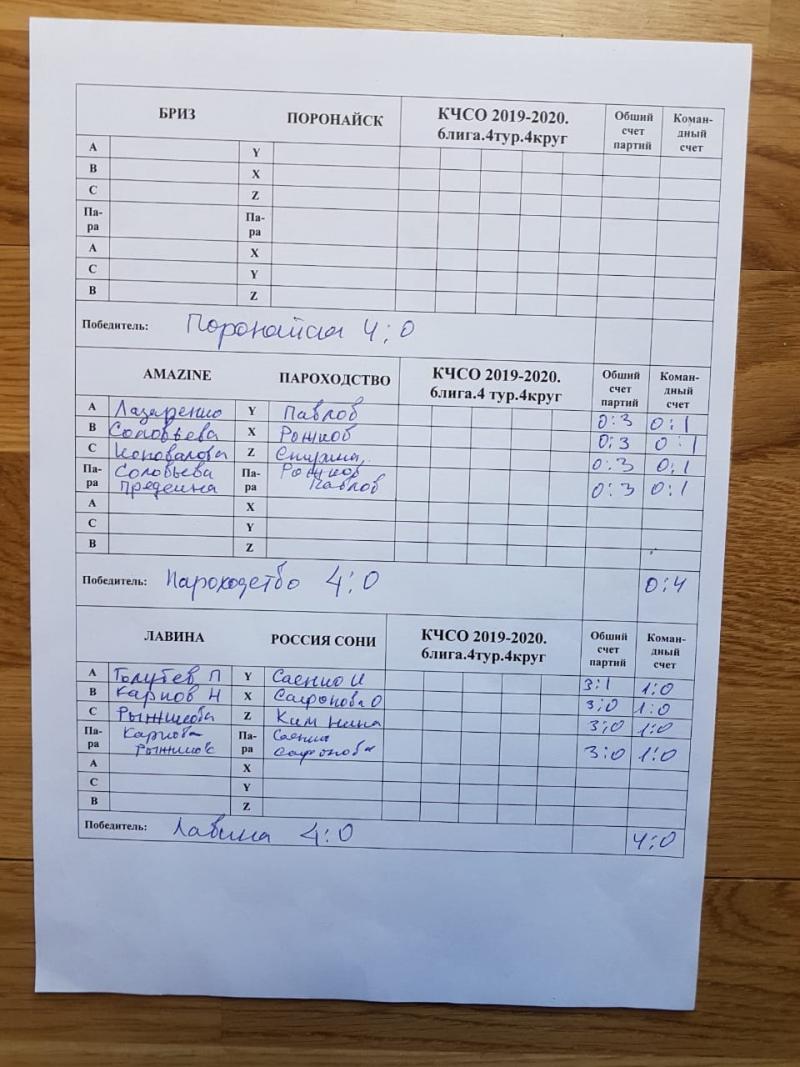 БРИЗ ПОРОНАЙСК КЧСО 2019-2020. Обший Коман-
6лига.4тур.4круг счет дный
партий счет
A Y
B X
C Z
Па- Па-
ра ра
A X
C Y
B Z
Победитель: Поронайск 4:0
AMAZINE ПАРОХОДСТВО КЧСО 2019-2020. Обший Коман-
6лига.4 тур.4круг счет дный
партий счет
A Лазаренко Y Павлов 0:3 0:1
B Соловьева X Рожков 0;3 0:1
C Коновалова Z 0:3 0;1
Па- Соловьева Па- Рожков
ра Предеина ра Павлов 0:3 0:1
A X
C Y
B Z
Победитель: Пароходство 4:0 0:4
ЛАВИНА РОССИЯ СОНИ КЧСО 2019-2020. Обший Коман-
6лига.4тур.4круг счет дный
партий счет
A П Y Саенко И 3:1 1:0
B Карпов Н X Сафонова О 3;0 1:0
C Рыжкова Z Ким Нина 3;0 1:0
Па- Карпова Па- Саенко
ра Рыжков ра Сафонова 3:0 1:0
A X
C Y
B Z
Победитель: Лавина 4:0 4:0